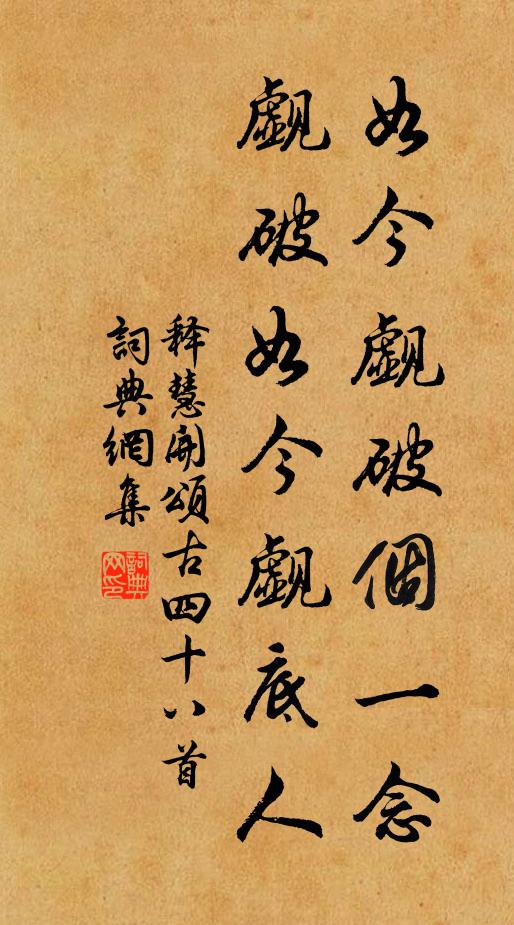 如今覷破個一念
覷破如今覷底人
释慧開頌古四十八首
詞典網集
詞典
网印